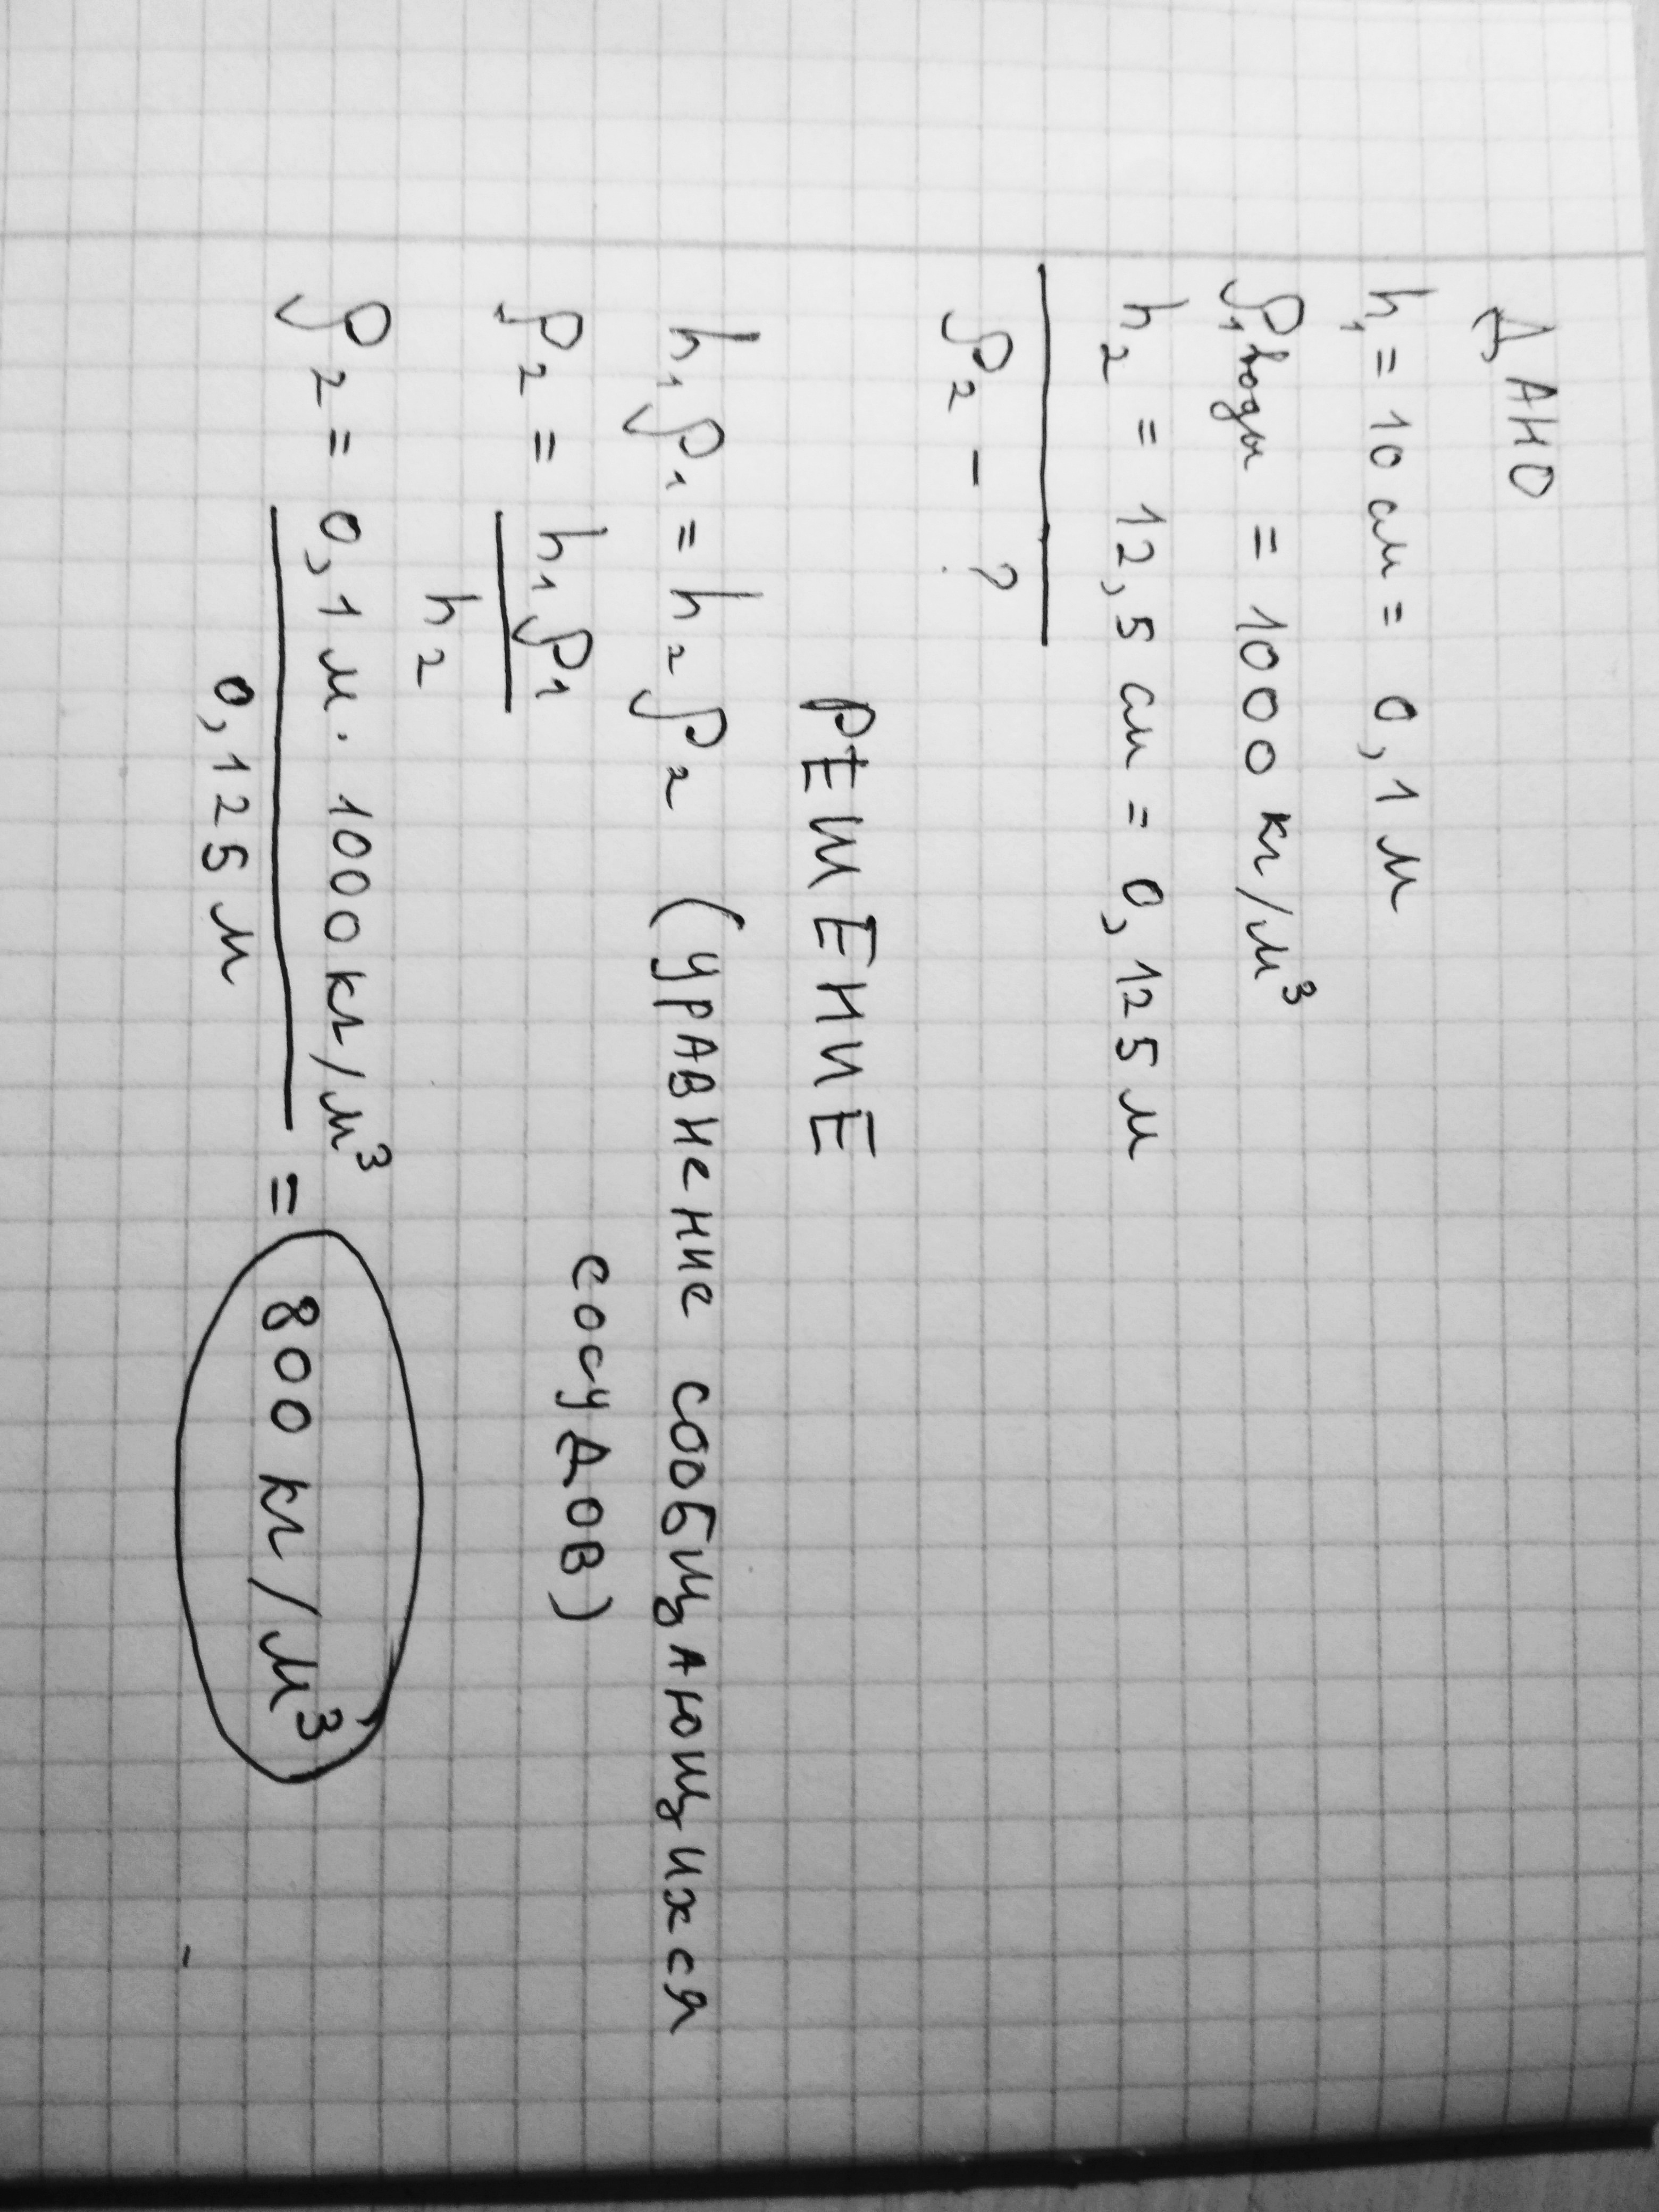 ДАНО
h₁ = 10 см = 0,1 м
ρ₁ воды = 1000 кг/м³
h₂ = 12,5 см = 0,125 м
ρ₂ - ?
РЕШЕНИЕ
h₁ρ₁ = h₂ρ₂ (уравнение сообщающихся
сосудов)
ρ₂ = h₁ρ₁
h₂
ρ₂ = 0,1 м · 1000 кг/м³
0,125 м
= 800 кг/м³